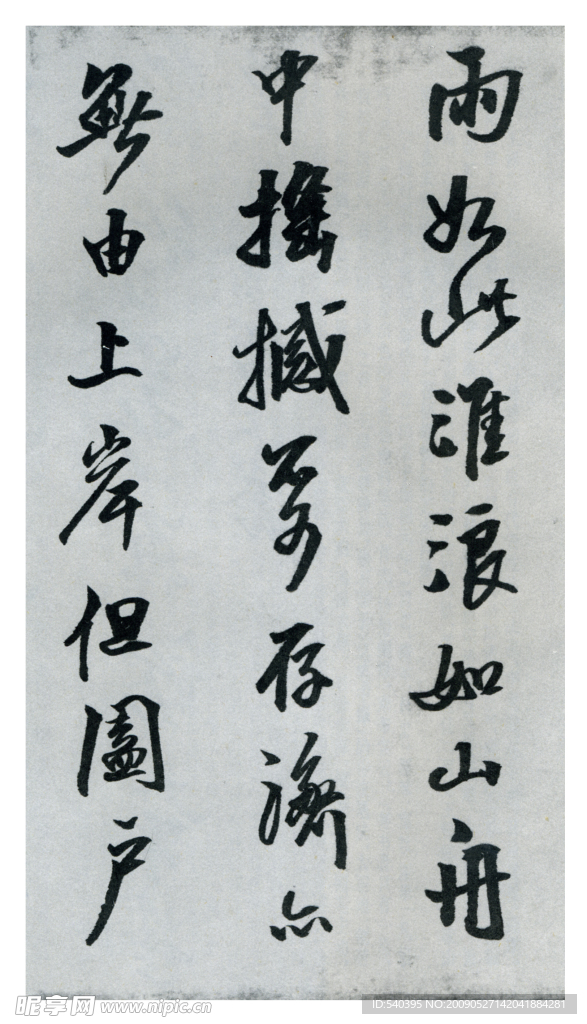 雨如此淮浪如山舟
中搖撼不可存濟亦
無由上岸但闔戶
昵享网 www.nipic.cn
ID:540395 NO:20090527142041884281